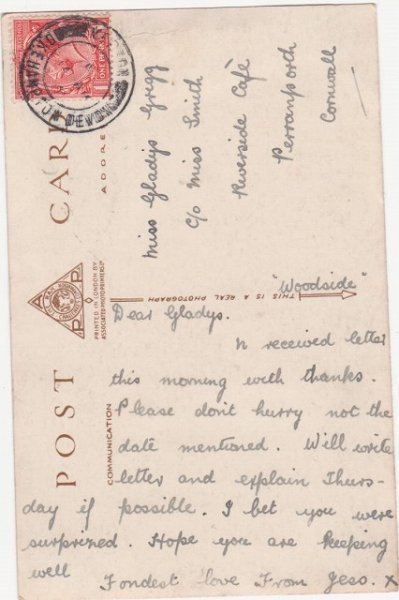 POST CARD
COMMUNICATION
ADDRESS
THIS IS A REAL PHOTOGRAPH
PRINTED IN LONDON BY
ASSOCIATED PHOTOPRINTERS LTD
P A P
ONE PENNY
DEVON
Miss Gladys Gregg
C/o Miss Smith
Riverside Café
Perranporth
Cornwall
"Woodside"
Dear Gladys.
received letter
this morning with thanks.
Please don't hurry not the
date mentioned. Will write
letter and explain Thurs-
day if possible. I bet you were
surprized. Hope you are keeping
well
Fondest love From Jess. X